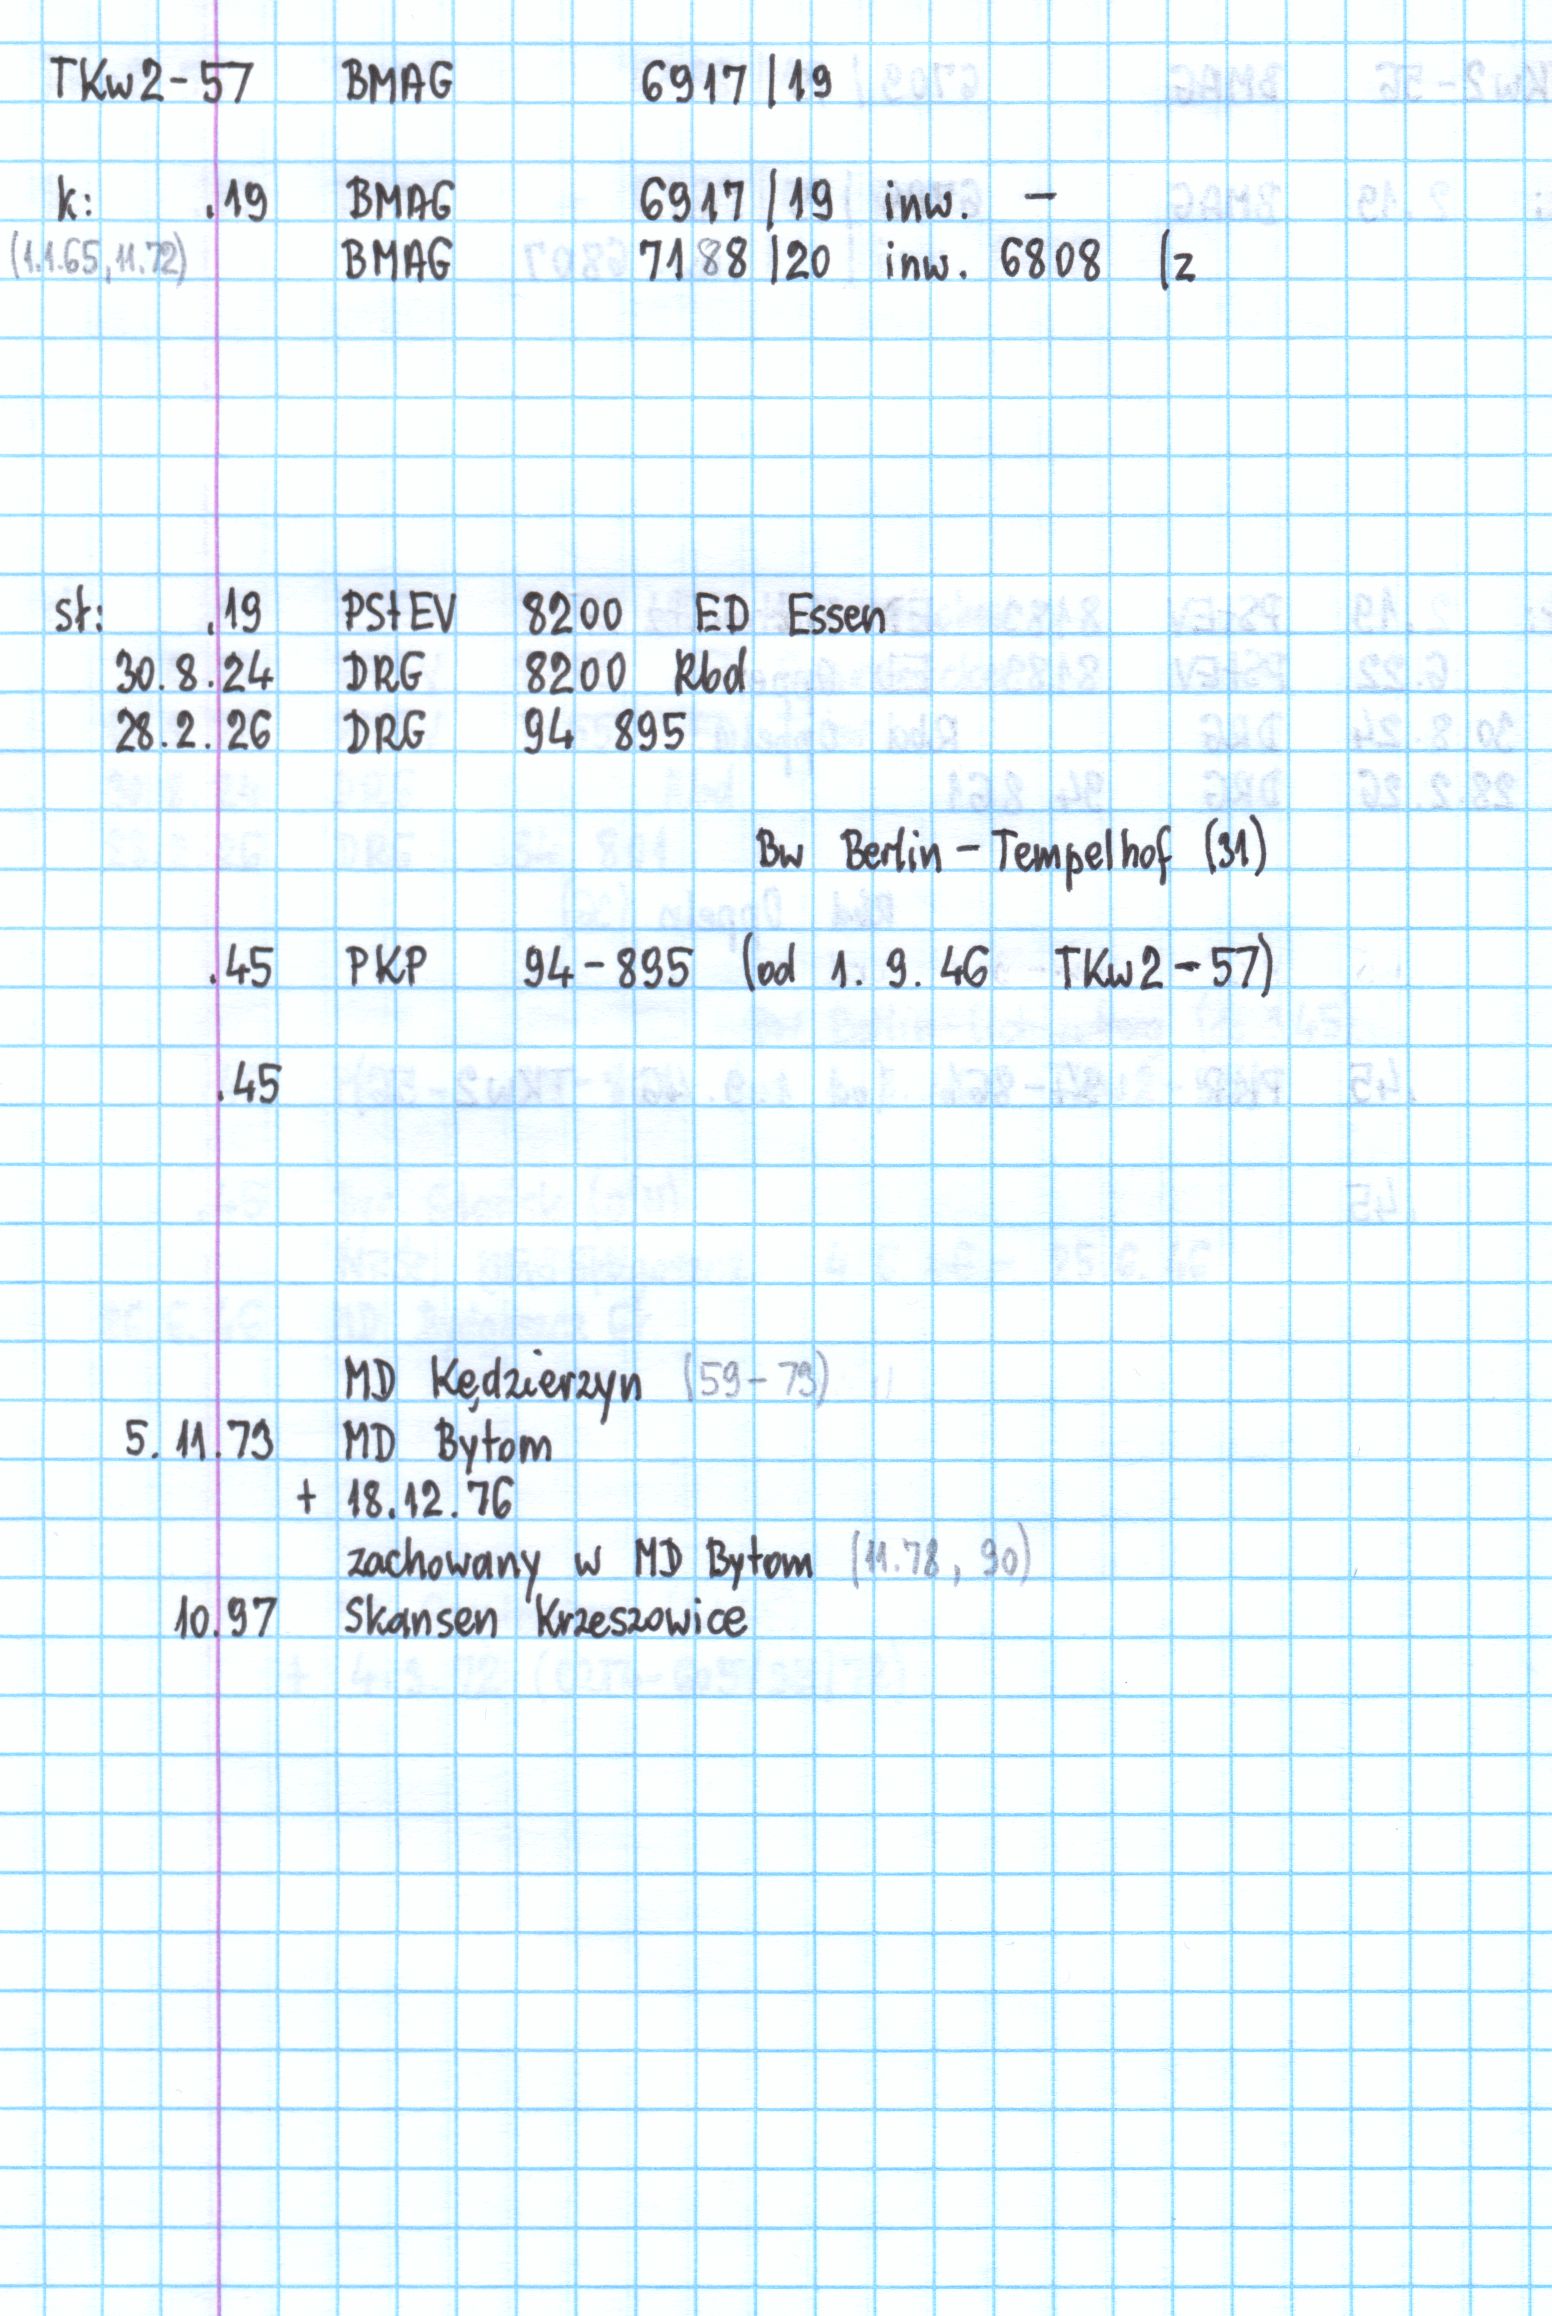 TKw2-57 BMAG 6917/19
k: .19 BMAG 6917/19 inw. -
(1.1.65, 11.72) BMAG 7188/20 inw. 6808 (z
st: .19 PStEV 8200 ED Essen
30.8.24 DRG 8200 Rbd
28.2.26 DRG 94 895
Bw Berlin-Tempelhof (31)
.45 PKP 94-895 (od 1.9.46 TKw2-57)
.45
MD Kędzierzyn (59-73)
5.11.73 MD Bytom
+ 18.12.76
zachowany w MD Bytom (11.78, 90)
10.97 Skansen Krzeszowice